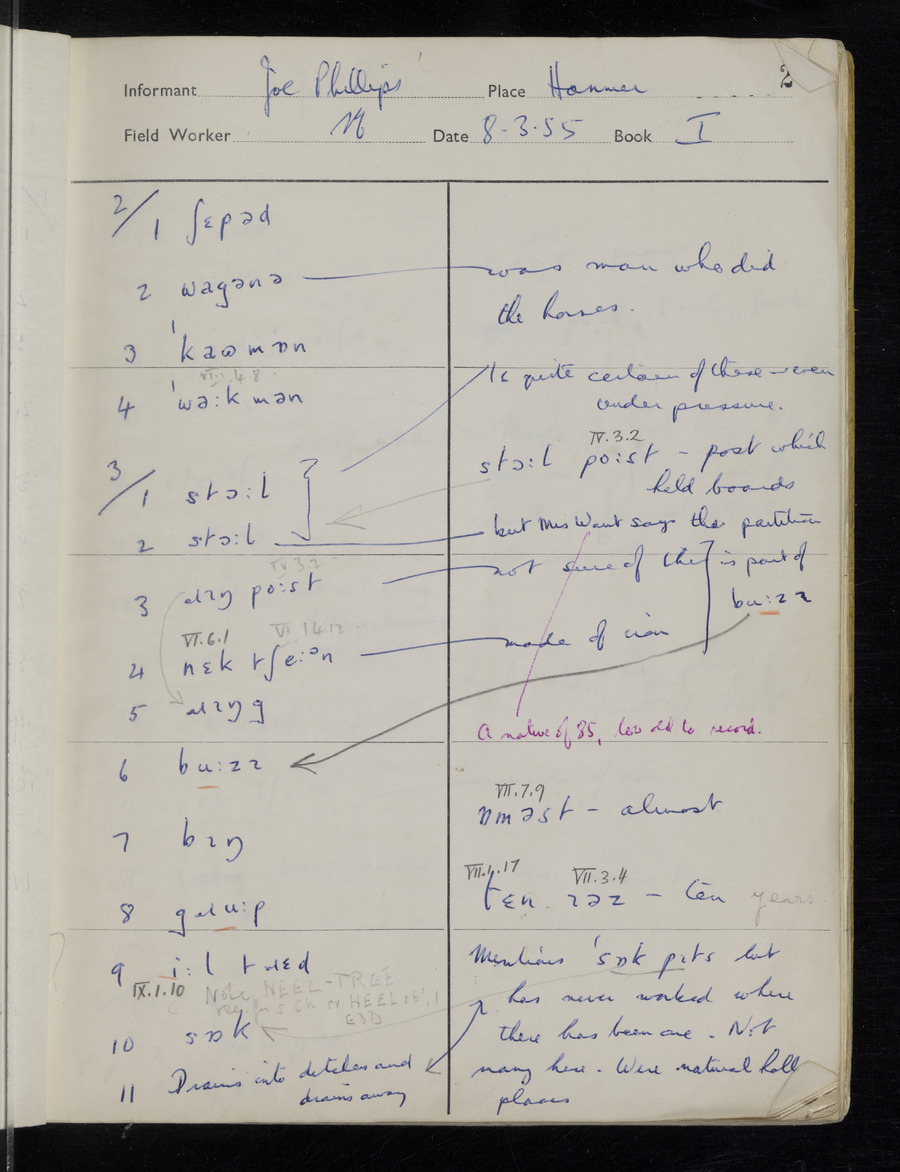 2
Informant Joe Phillips Place Hanmer
Field Worker Date 8-3-55 Book I
2/1 ʃɛpəd
2 wagənə — was man who did
the horses.
3 ˈkaʊmən
VIII.4.8
4 ˈwəːkmən
Is quite certain of these – even
under pressure.
3/1 stɔːl
2 stɔːl
IV.3.2
stɔːl poːst – post which
held boards
but Mrs Want says the partition
is part of
buːzɪ
IV.3.2
3 poːst — not sure of this
VI.6.1 VI.14.12
4 nɛk tʃeːᵊn — made of iron
5
A native of 85, too old to record.
6 buːzɪ
7 bɪŋ
VII.7.9
ɒməst – almost
8
VII.1.17 VII.3.4
tɛn – ten years
9 iːl
IX.1.10 Note HEEL-TREE
EDD
10 sɒk
Mentions ˈsɒk pɪts but
has never worked where
there has been one. Not
many here. Were natural
places
11 Drains into ditches and
drains away